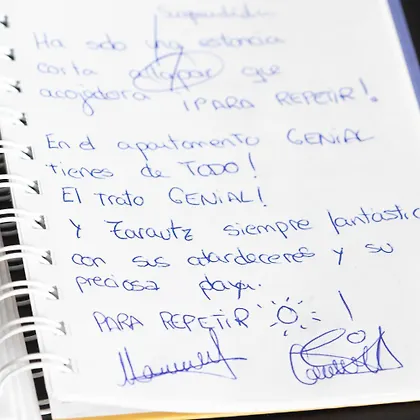 Ha sido una estancia
corta a la par que
acogedora ¡PARA REPETIR!
En el apartamento GENIAL
tienes de TODO!
El trato GENIAL!
Y Zarautz siempre fantástic
con sus atardeceres y su
preciosa playa.
PARA REPETIR !